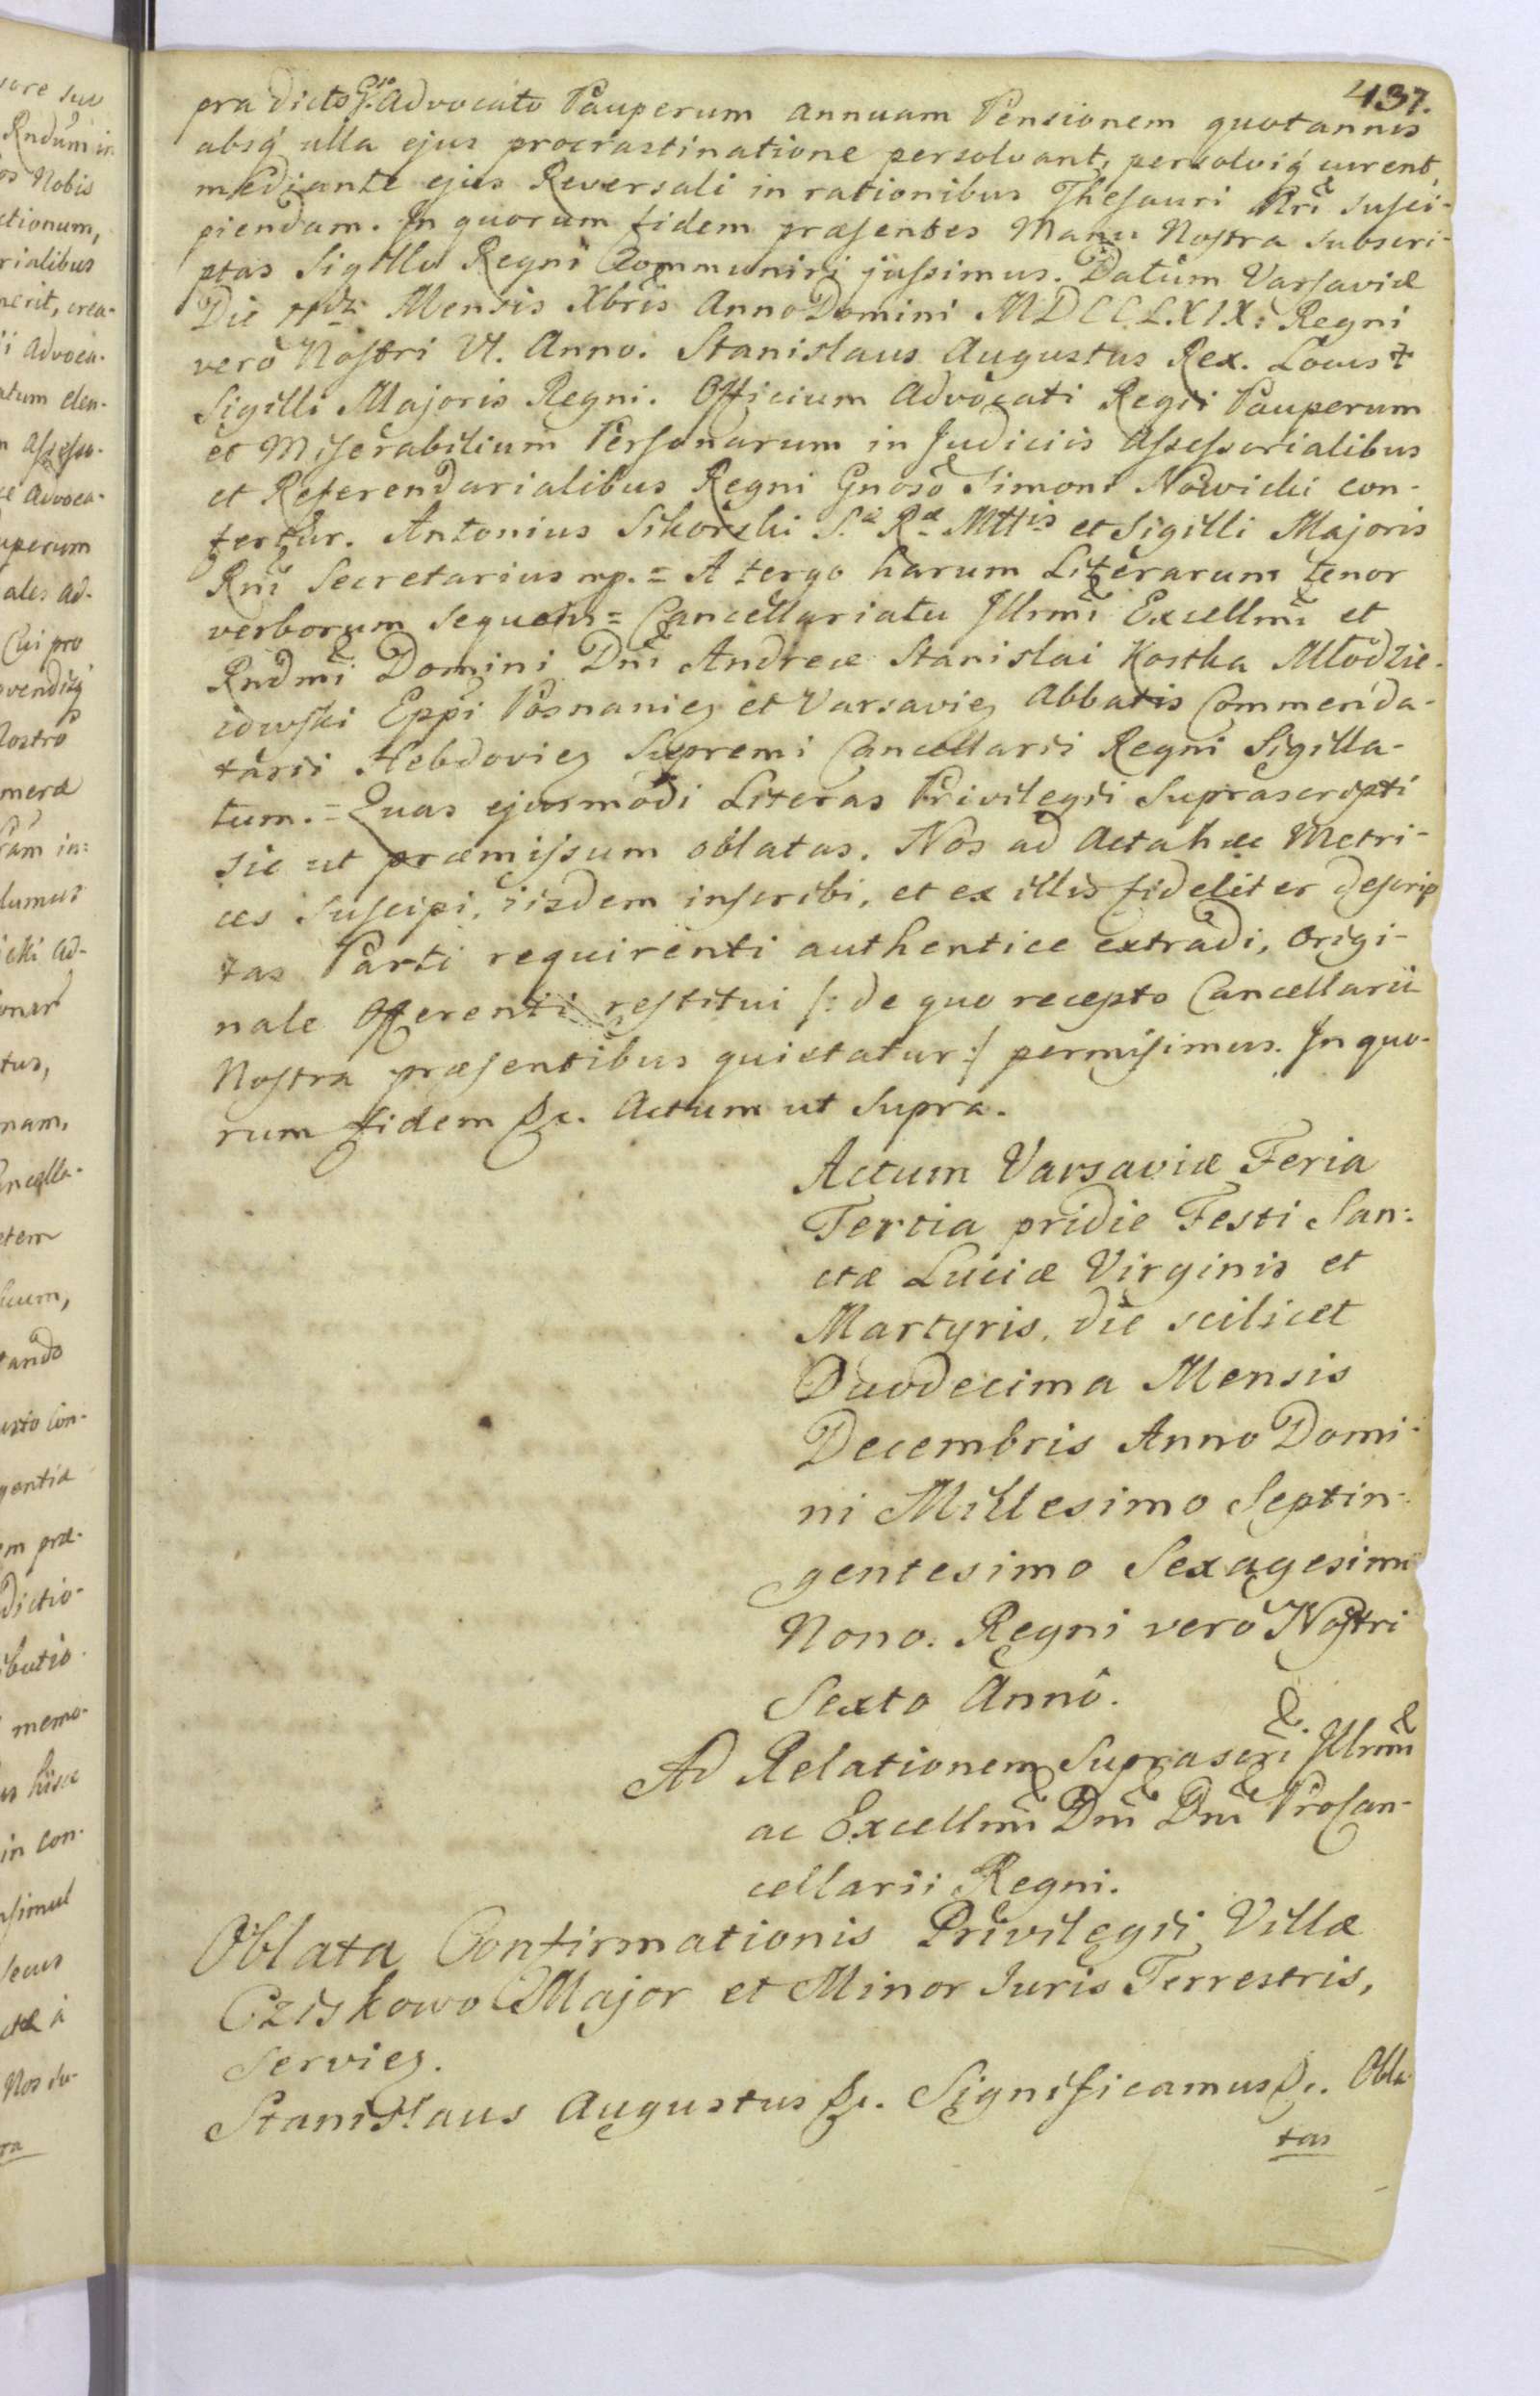 437.
prædicto Gso Advocato Pauperum annuam Pensionem quotannis
absq́ ulla ejus procrastinatione persolvant, persolviq́ curent,
mediante ejus Reversali in rationibus Thesauri Nri susci-
piendam. In quorum fidem præsentes Manu Nostra subscri-
ptas Sigillo Regni Communiri jussimus. Datum Varsaviæ
Die Mensis Xbris Anno Domini MDCCLXIX: Regni
verò Nostri VI. Anno. Stanislaus Augustus Rex. Locus
Sigilli Majoris Regni. Officium Advocati Regii Pauperum
et Miserabilium Personarum in Judiciis Assessorialibus
et Referendarialibus Regni Gnosô Simoni Nowicki con-
fertur. Antonius Sikorski S. Ræ Mttis et Sigilli Majoris
Rni Secretarius mp. = A tergo harum Literarum tenor
verborum sequens = Cancellariatu Jllrmi Excellmi et
Rndmi Domini Dni Andreæ Stanislai Kostka Młodzie-
iowski Eppi Posnanieȝ et Varsavieȝ Abbatis Commenda-
tarii Hebdovieȝ Supremi Cancellarii Regni Sigilla-
tum. = Quas ejusmodi Literas Privilegii Suprascripti
sic ut præmissum oblatas. Nos ad Acta hæc Metri-
ces suscipi, iisdem inscribi, et ex illis fideliter descrip
tas Parti requirenti authentice extradi, origi-
nale Offerenti restitui /: de quo recepto Cancellarii
Nostra præsentibus quietatur :/ permisimus. In quo-
rum fidem &c. Actum ut supra.
Actum Varsaviæ Feria
Tertia pridie Festi San:
ctæ Luciæ Virginis et
Martyris, die scilicet
Duodecima Mensis
Decembris Anno Domi-
ni Millesimo Septin-
gentesimo Sexagesimo
Nono. Regni verò Nostri
Sexto Annô.
Ad Relationem Suprascri Jllrmi
ac Excellmi Dni Dni ProCan-
cellarii Regni.
Oblata Confirmationis Privilegii Villæ
Cziskowo Major et Minor Juris Terrestris,
Servieȝ.
Stanislaus Augustus &c. Significamus &c. Obla
tas